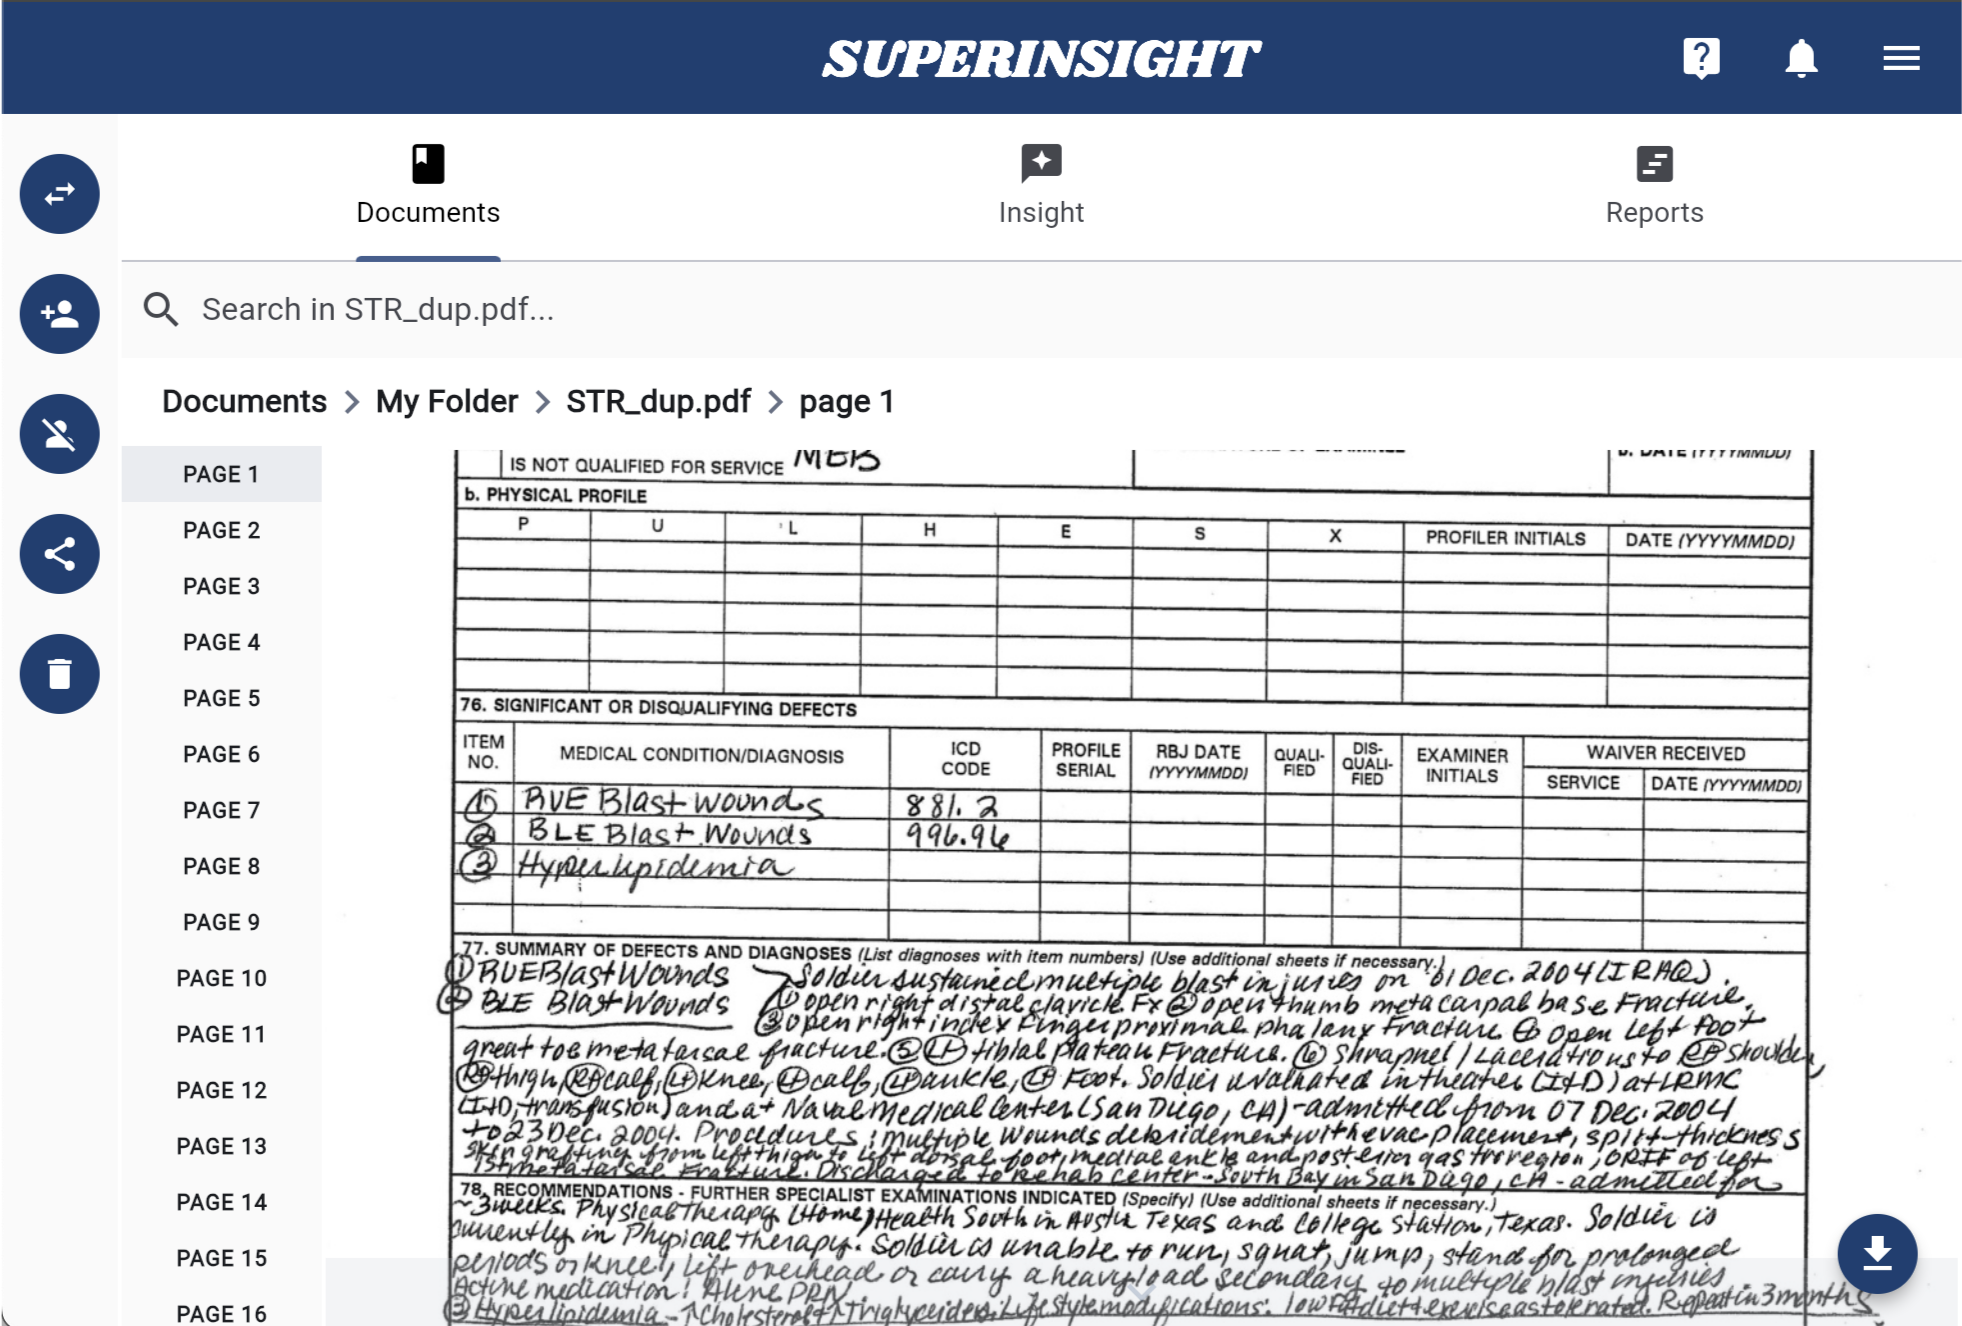 SUPERINSIGHT
Documents
Insight
Reports
Search in STR_dup.pdf...
Documents > My Folder > STR_dup.pdf > page 1
PAGE 1
PAGE 2
PAGE 3
PAGE 4
PAGE 5
PAGE 6
PAGE 7
PAGE 8
PAGE 9
PAGE 10
PAGE 11
PAGE 12
PAGE 13
PAGE 14
PAGE 15
PAGE 16
IS NOT QUALIFIED FOR SERVICE MEB
b. DATE (YYYYMMDD)
b. PHYSICAL PROFILE
P U L H E S X PROFILER INITIALS DATE (YYYYMMDD)
76. SIGNIFICANT OR DISQUALIFYING DEFECTS
ITEM NO. MEDICAL CONDITION/DIAGNOSIS ICD CODE PROFILE SERIAL RBJ DATE (YYYYMMDD) QUALI-FIED DIS-QUALI-FIED EXAMINER INITIALS WAIVER RECEIVED
SERVICE DATE (YYYYMMDD)
① RUE Blast wounds 881.2
② BLE Blast Wounds 996.96
③ Hyperlipidemia
77. SUMMARY OF DEFECTS AND DIAGNOSES (List diagnoses with item numbers) (Use additional sheets if necessary.)
① RUE Blast Wounds Soldier sustained multiple blast injuries on 01 Dec. 2004 (IRAQ).
② BLE Blast Wounds ① open right distal clavicle Fx ② open thumb metacarpal base Fracture.
③ open right index Finger proximal phalanx Fracture ④ open left foot
great toe metatarsal fracture. ⑤ LT tibial plateau Fracture. ⑥ Shrapnel / Lacerations to RT shoulder,
RT thigh, RT calf, LT Knee, LT calf, LT ankle, LT Foot. Soldier evaluated in theater (I+D) at LRMC
(I+D, transfusion) and at Naval Medical Center (San Diego, CA) - admitted from 07 Dec. 2004
to 23 Dec. 2004. Procedures: multiple wounds debridement with evac placement, split-thickness
skin grafting from left thigh to left dorsal foot, medial ankle and posterior gastroregion, ORIF of left
1st metatarsal Fracture. Discharged to rehab center - South Bay in San Dago, CA - admitted for
78. RECOMMENDATIONS - FURTHER SPECIALIST EXAMINATIONS INDICATED (Specify) (Use additional sheets if necessary.)
~3 weeks. Physical Therapy (Home) Health South in Austin Texas and College Station, Texas. Soldier is
currently in Physical therapy. Soldier is unable to run, squat, jump, stand for prolonged
periods or kneel, lift overhead or carry a heavy load secondary to multiple blast injuries
Active medication: Aleve PRN
③ Hyperlipidemia - ↑Cholesterol + ↑Triglycerides. Lifestyle modifications: low Fat diet + exercise as tolerated. Repeat in 3 months